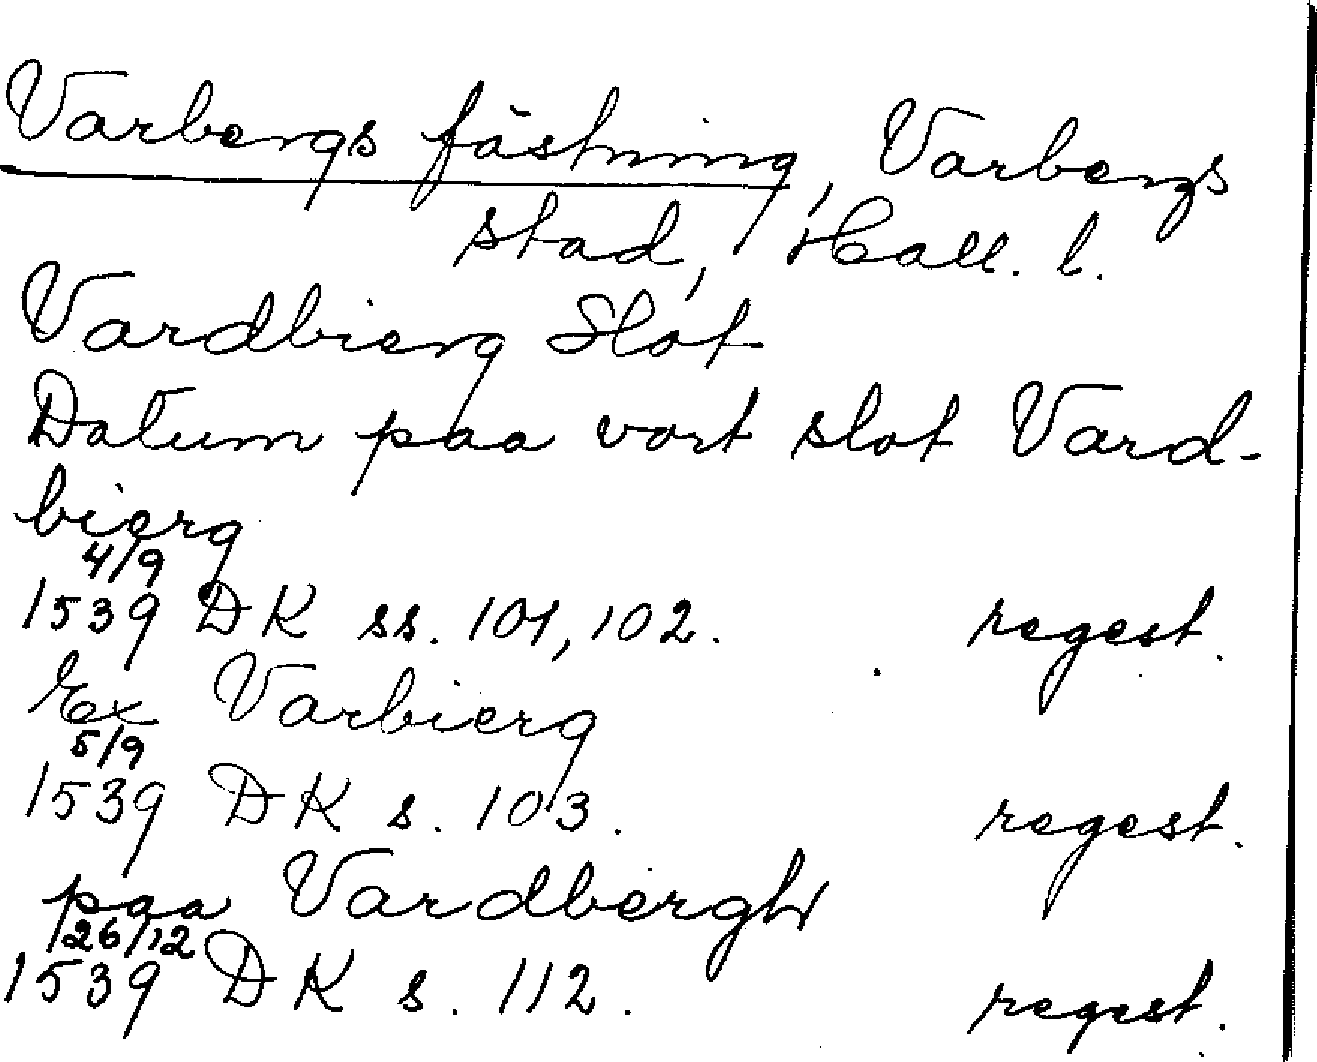 Varbergs fästning, Varbergs
stad, Hall. l.
Vardbierg Slot
Datum paa vort slot Vard-
bierg
4/9
1539 DK ss. 101, 102. regest.
Ex Varbierg
5/9
1539 DK s. 103. regest.
paa Vardbergh
26/12
1539 DK s. 112. regest.